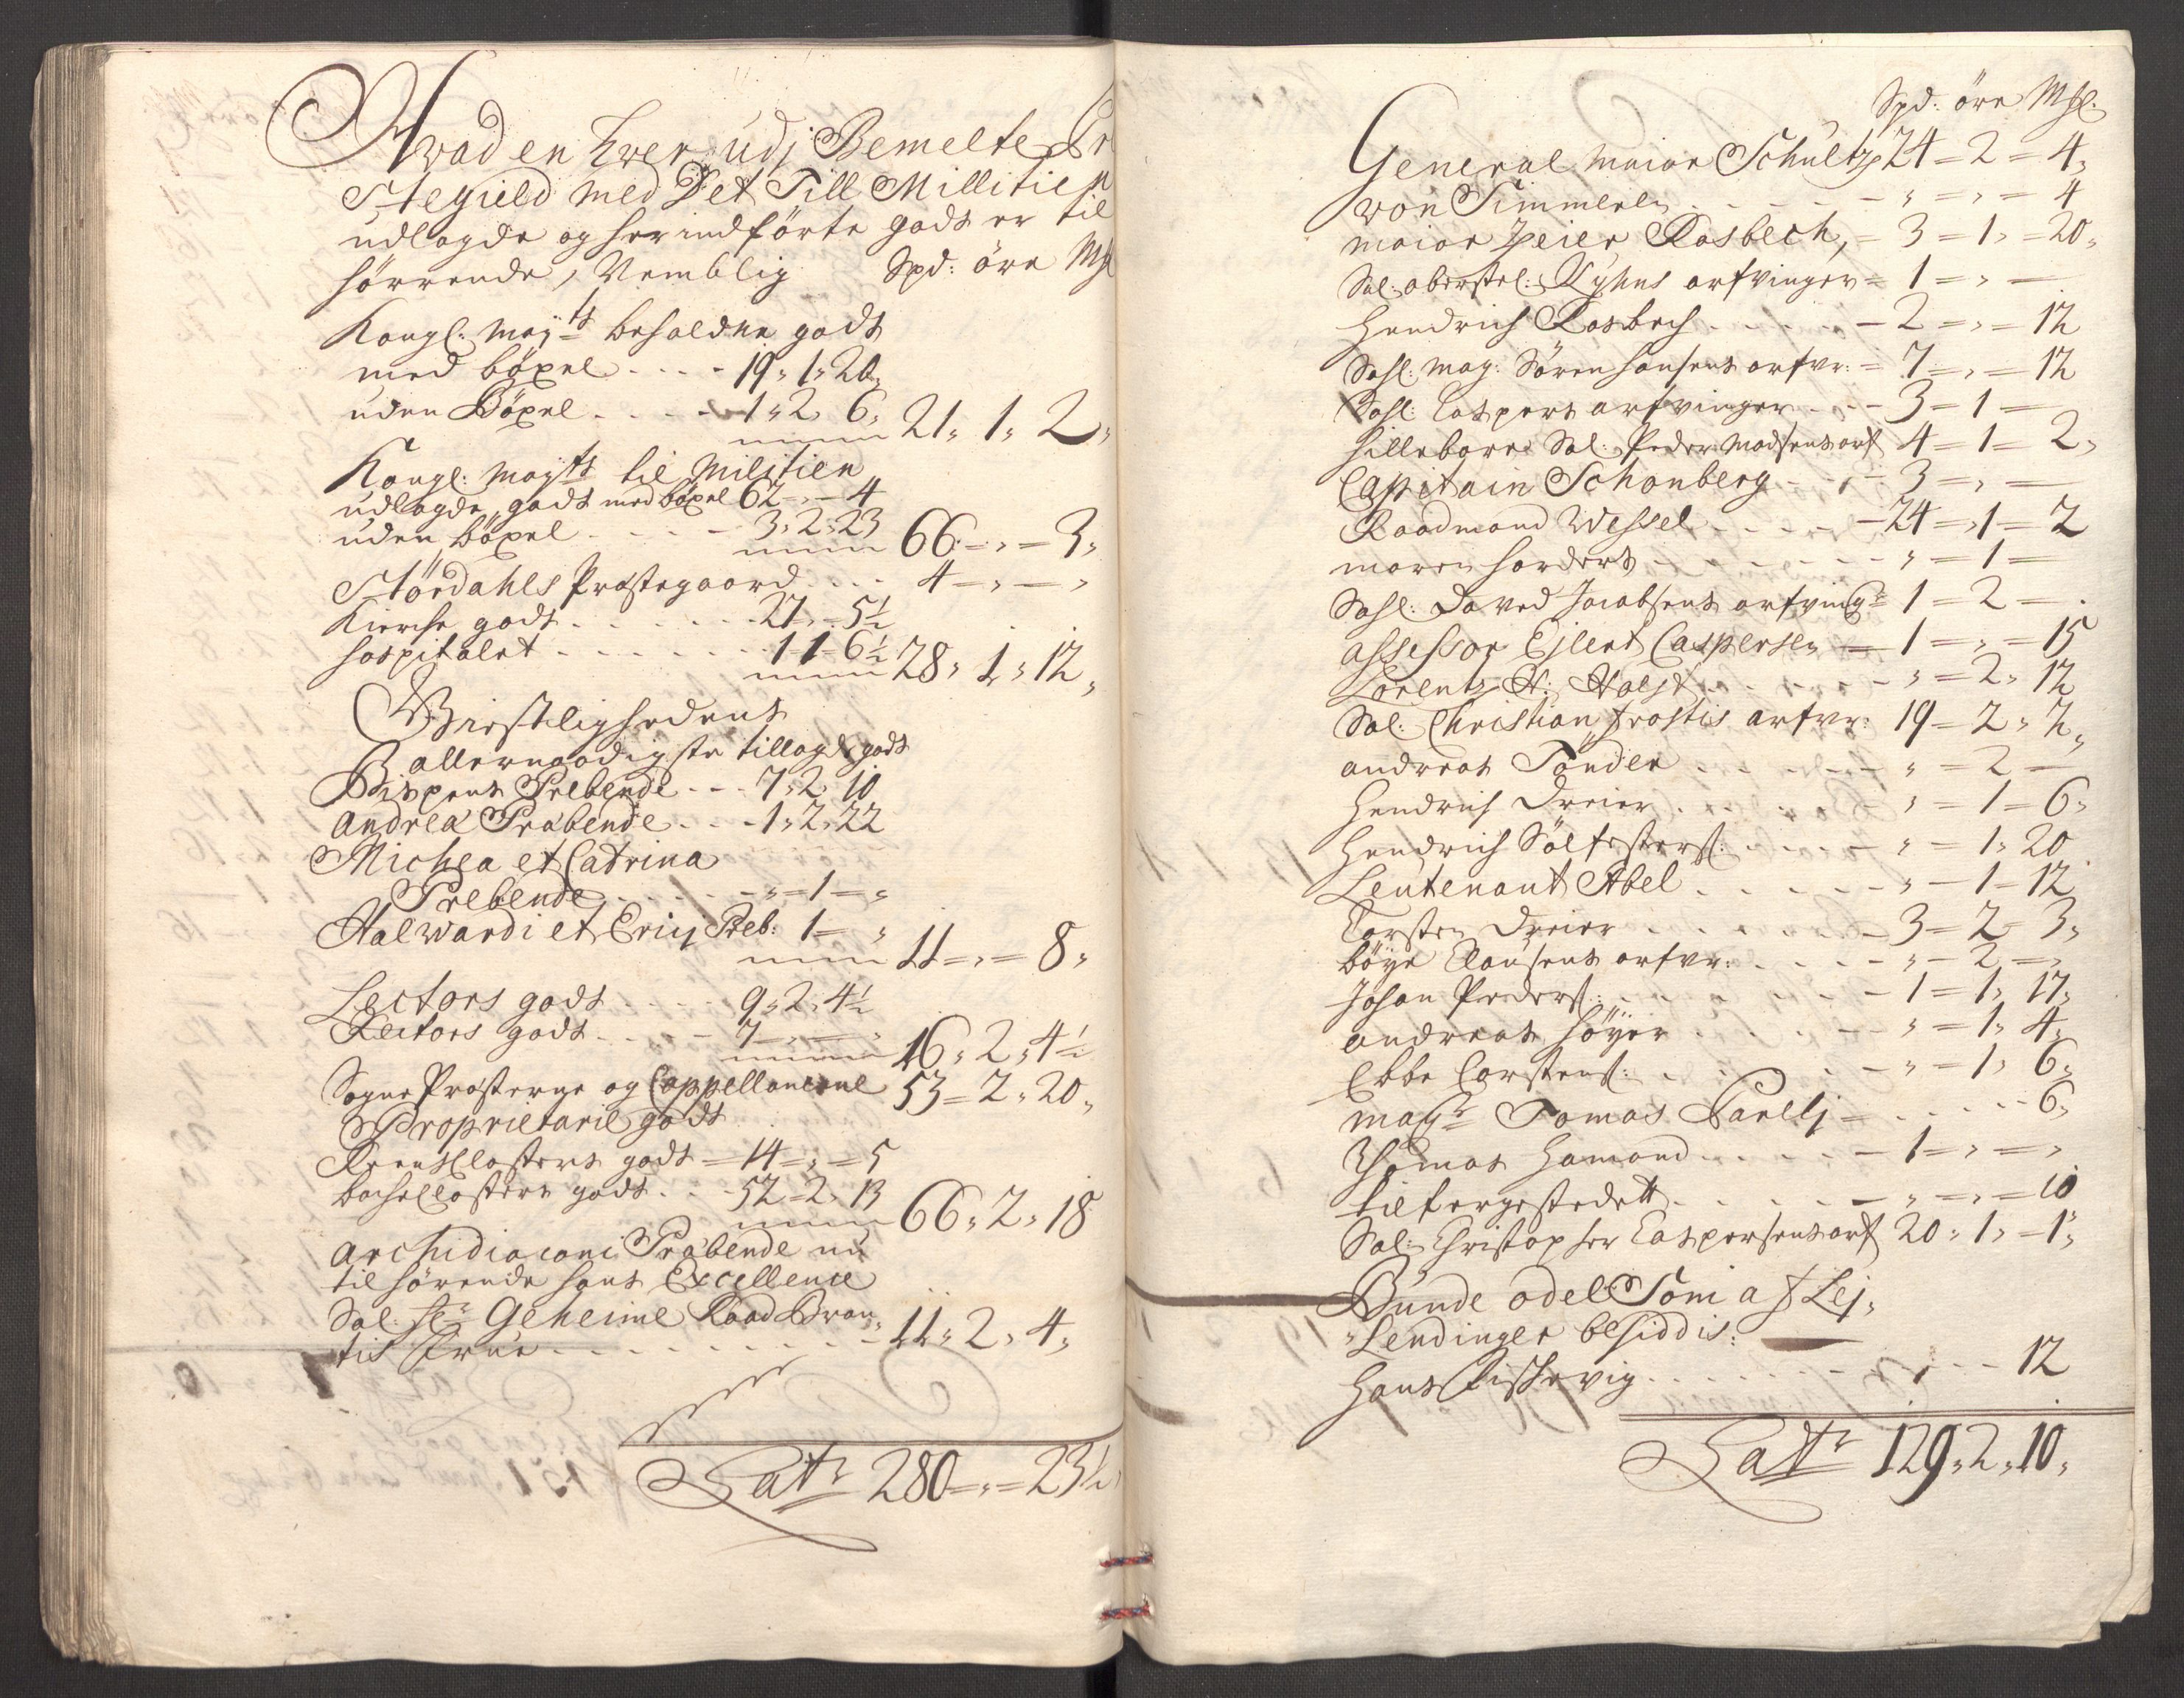 Hvad en hver udj Bemelte
Stegield med Det Till Millitien
udlagde og her indførte godt er til
hørrende, Nemblig Spd: øre Mhl
Kongl: May.ts beholdne godt
med böxel . . . . 19, 1, 20,
uden Böxel . . . . 1, 2, 6, 21, 1, 2,
Kongl: May.ts til Militien
udlagde godt med böxel 62 - , - 4
uden böxel . . . . 3, 2, 23 66 - , = 3,
Stördahls Præstegaard . . . . 4 - , - ,
Kierche godt . . . . 27 - , - 5½
hospitalet . . . . 1 - 1 - 6½ 28, 1, 12,
Giestlighedens
allernaadigste tillagde godt
Bispens Prebende . . . 7, 2, 10
Andrea Præbende . . . 1, 2, 22
Michea et Catrina
Prebende . . . . , - 1 - ,
Halwardi et Ericj Preb: 1 - , 11 - , = 8,
Lectors godt . . . . 9, 2, 4½
Rectors godt . . . . 7 - , - , 16, 2, 4½
Sogne Præsterne og Cappellanerne 53 = 2, 20,
Proprietarie godt
Reens Closters godt = 14 = , = 5
bacheclosters godt . . . 52 = 2, 13 66, 2, 18
Archidiaconi Præbende nu
tilhørende hans Excellence
Sal: Hr. Geheime Raad Bran-
tis Frue . . . . 11, 2, 4,
Lat.r 280 = , = 23½
Spd: øre Mhl.
General maior Schultz 24 = 2 = 4,
von Timmeren . . . . , = , = 4
maior Peier Rosbech, = 3 = 1, = 20,
Sal: oberstel: Kyhns arfvinger = 1 = , =
Hendrich Rosbech . . . . 2 = , = 12
Sahl: mag: Sören hansens arfvr: = 7 = , = 12
Sahl: Caspers arfvinger . . . 3 = 1 =
hillebore Sal: Peder Madsens arf 4 = 1 = 2,
Capitain Schonberg . . . 3 = , =
Raadmand Wessel . . . . 24 = , 1 = 2
maren harders . . . . , = 1 =
Sahl: David Jacobsens arfving.r 1 = 2 =
assessor Ejlert Caspersen = 1 = , = 15
Lorentz H: Holst . . . . , = 2, 12
Sal: Christian frostis arfvr: 19 = 2, 2,
andreas Tonder . . . . , = 2 =
Hendrich Dreier . . . . , = 1 = 6,
Hendrich Sölfesters: . . . . , = 1, 20
Leutenant Abel . . . . , - 1 - 12
Carsten Dreier . . . . 3 = 2 = 3,
böye Clausens arfvr: . . . . , = 2 = ,
Johan Peders: . . . . 1 = 1, 17,
andreas höyer . . . . , = 1, 4,
Ebbe Carstens: . . . . , = 1, 6,
mag.r Tomas Parellj = . . . . 6,
Thomas Hamond . . . . 1 = , = ,
tilfergestedett . . . . , = , = 10
Sal: Christopher Caspersens arf 20, 1, - 1,
Bunde odel Som af Lej-
lendinger besiddis:
Hans Fischvig . . . . , . . . 12
Lat.r 129, 2, 10,